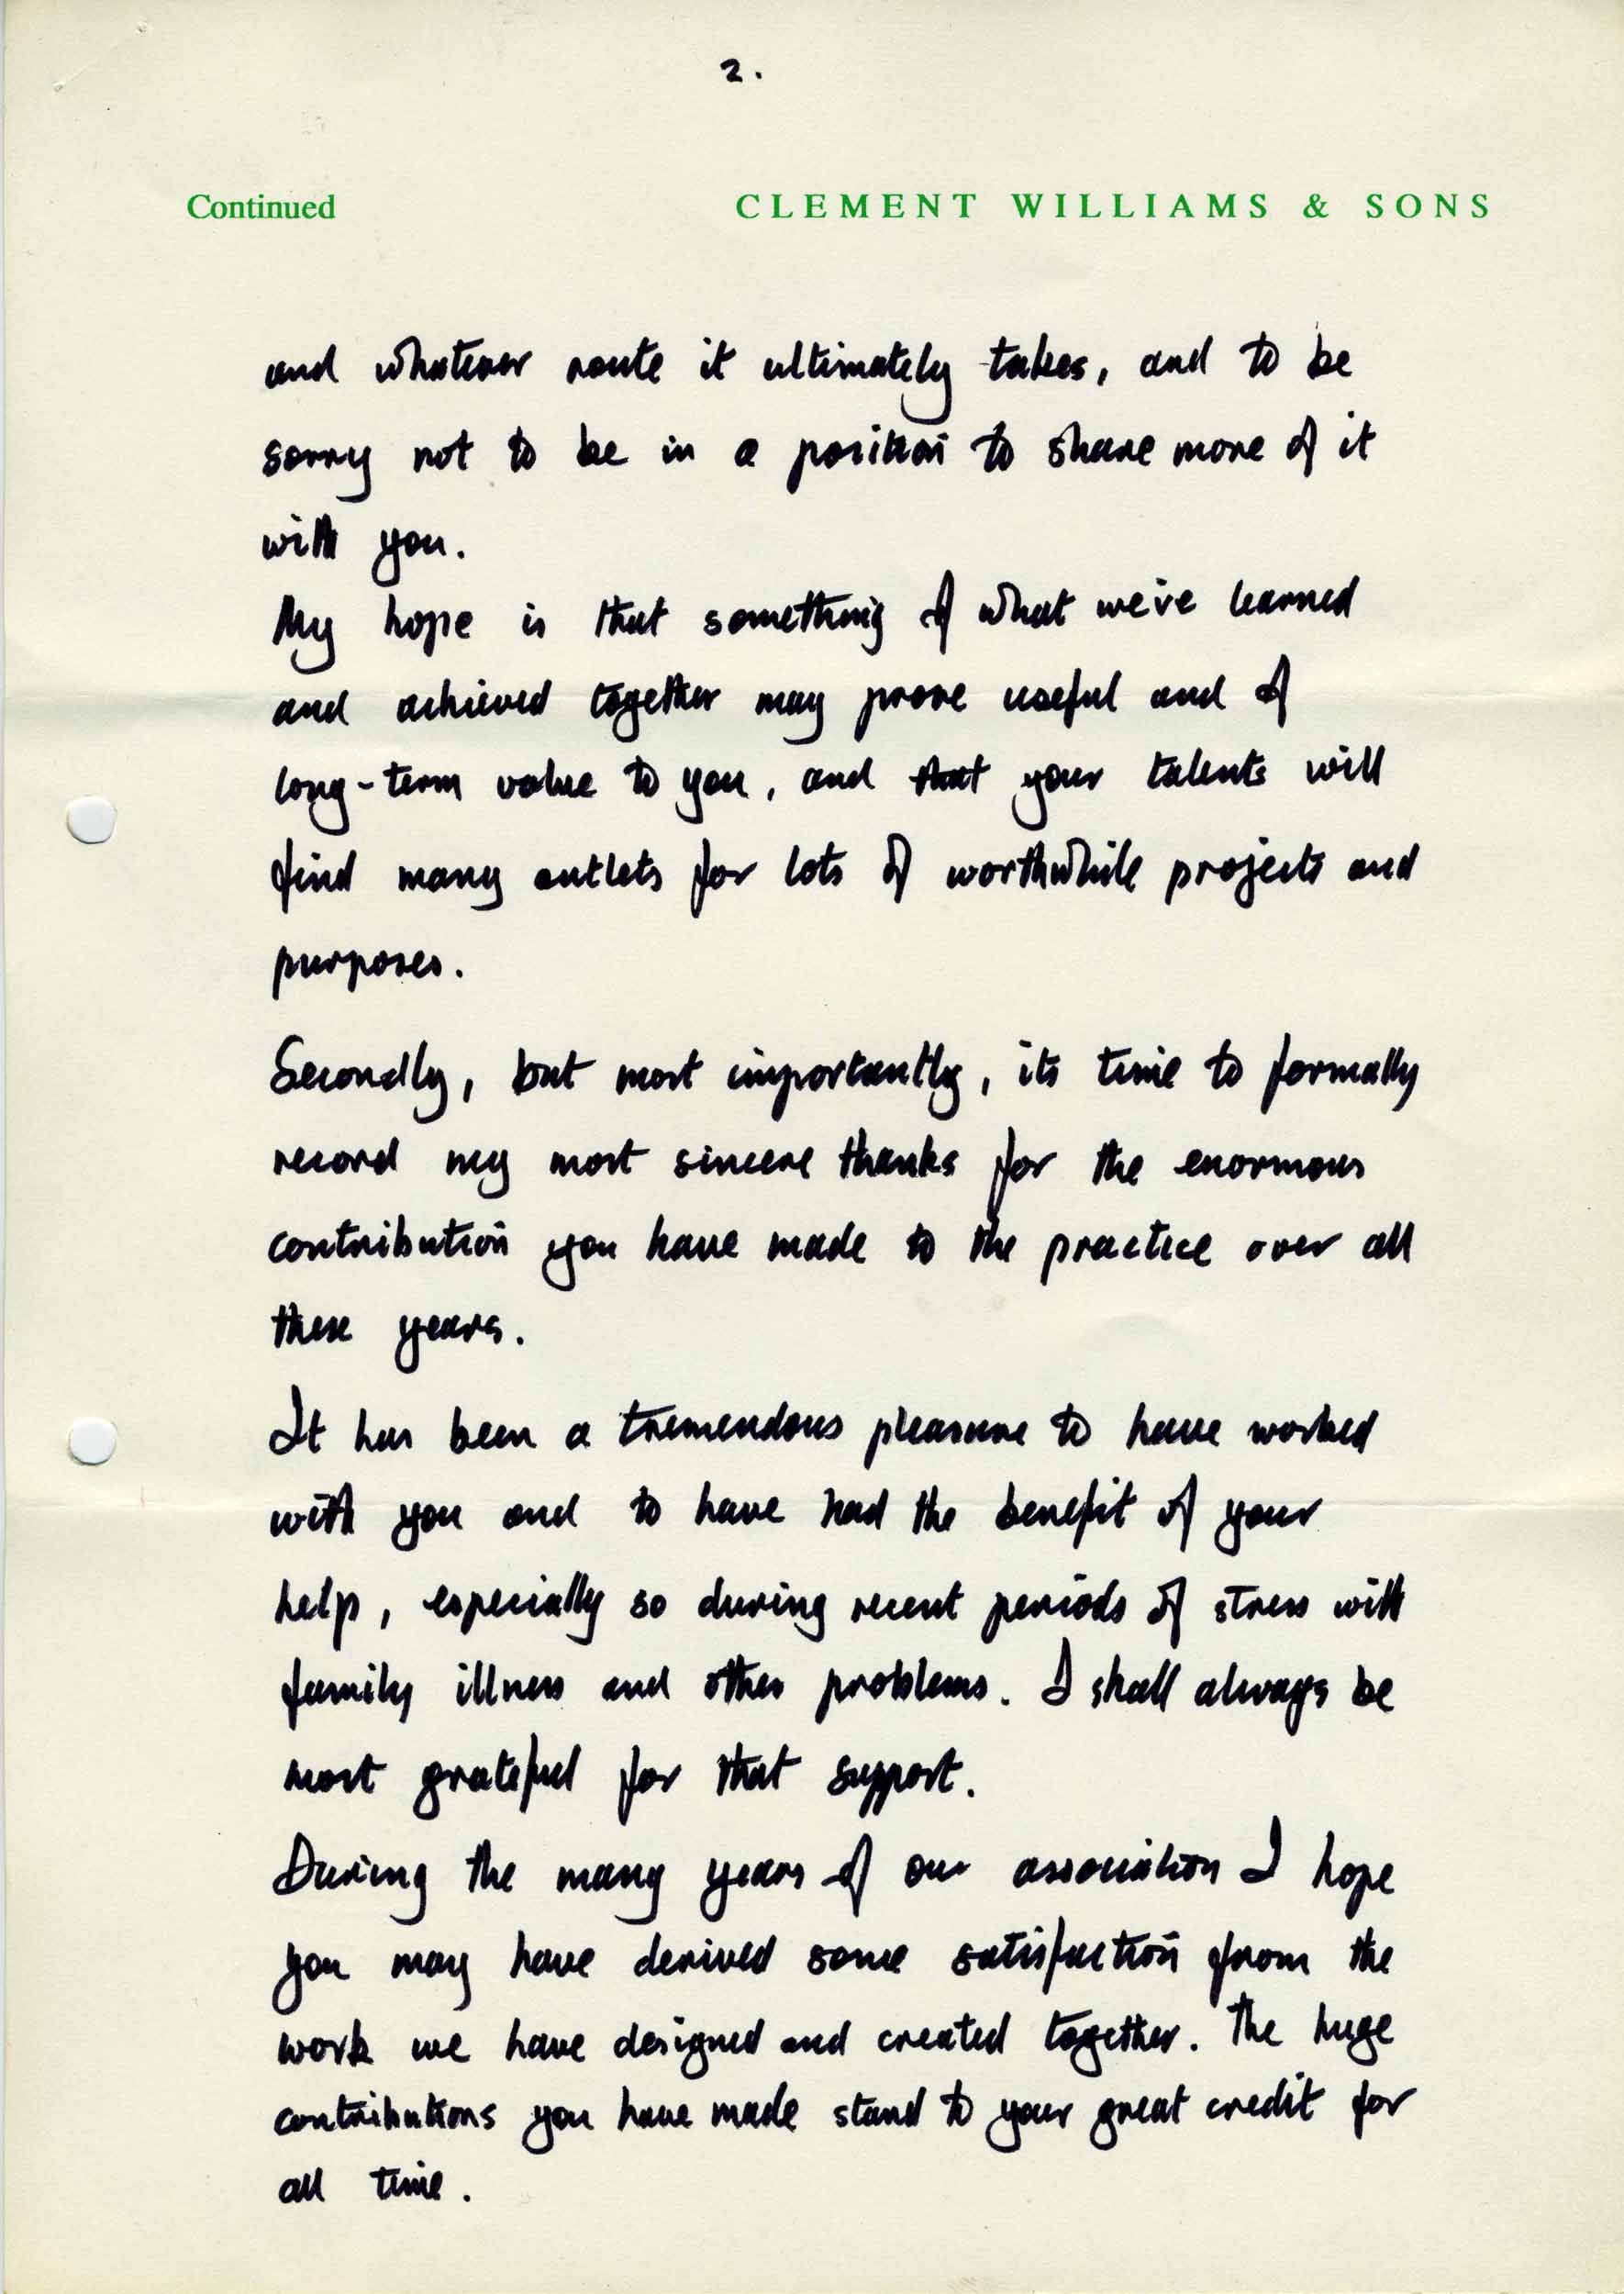 2.
Continued CLEMENT WILLIAMS & SONS
and whatever route it ultimately takes, and to be
sorry not to be in a position to share more of it
with you.
My hope is that something of what we've learned
and achieved together may prove useful and of
long-term value to you, and that your talents will
find many outlets for lots of worthwhile projects and
purposes.
Secondly, but most importantly, its time to formally
record my most sincere thanks for the enormous
contribution you have made to the practice over all
these years.
It has been a tremendous pleasure to have worked
with you and to have had the benefit of your
help, especially so during recent periods of stress with
family illness and other problems. I shall always be
most grateful for that support.
During the many years of our association I hope
you may have derived some satisfaction from the
work we have designed and created together. The huge
contributions you have made stand to your great credit for
all time.